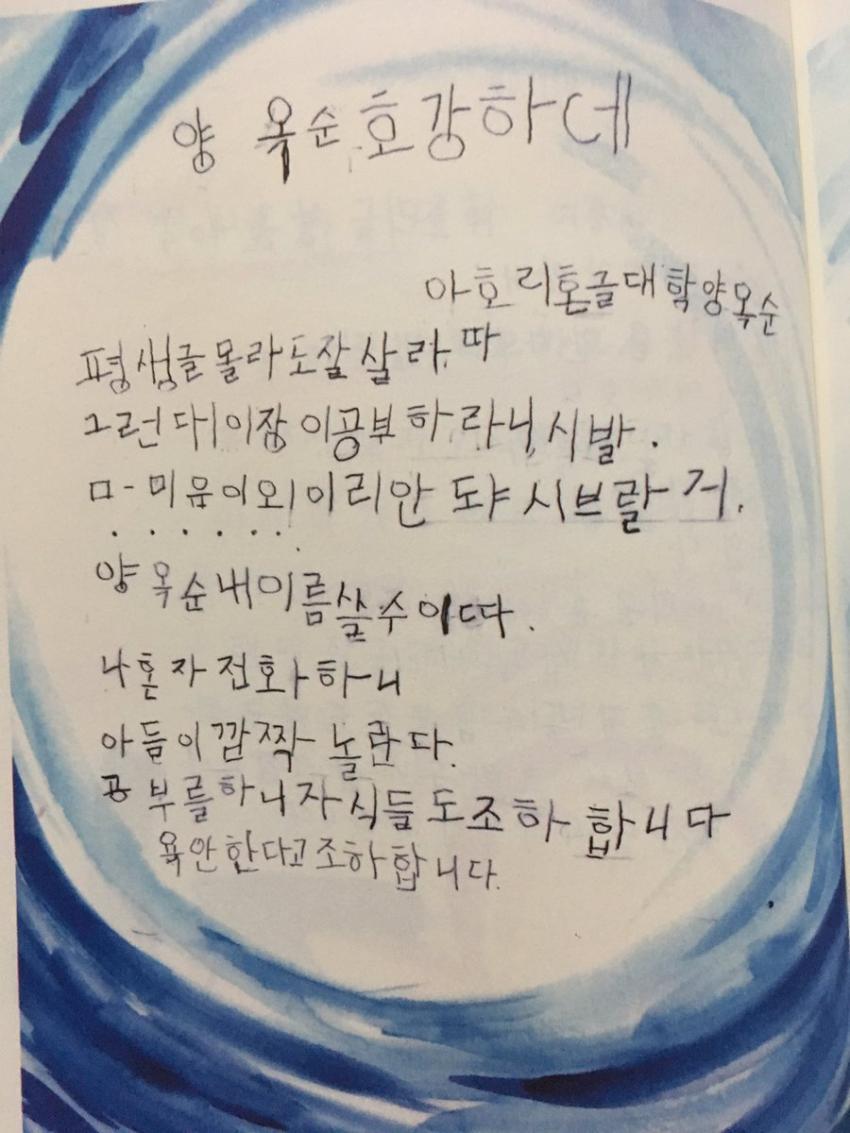 양 옥순 호강하데
아호리혼글대학양옥순
평생글몰라도잘살라따
그런대이장이공부하라니시발.
ㅁ-미음이외이리안도냐시브랄거.
. . . . . . .
양옥순내이름쓸수이따.
나혼자전화하니
아들이깜짝놀란다.
공부를하니자식들도조하합니다
욕안한다고조하합니다.